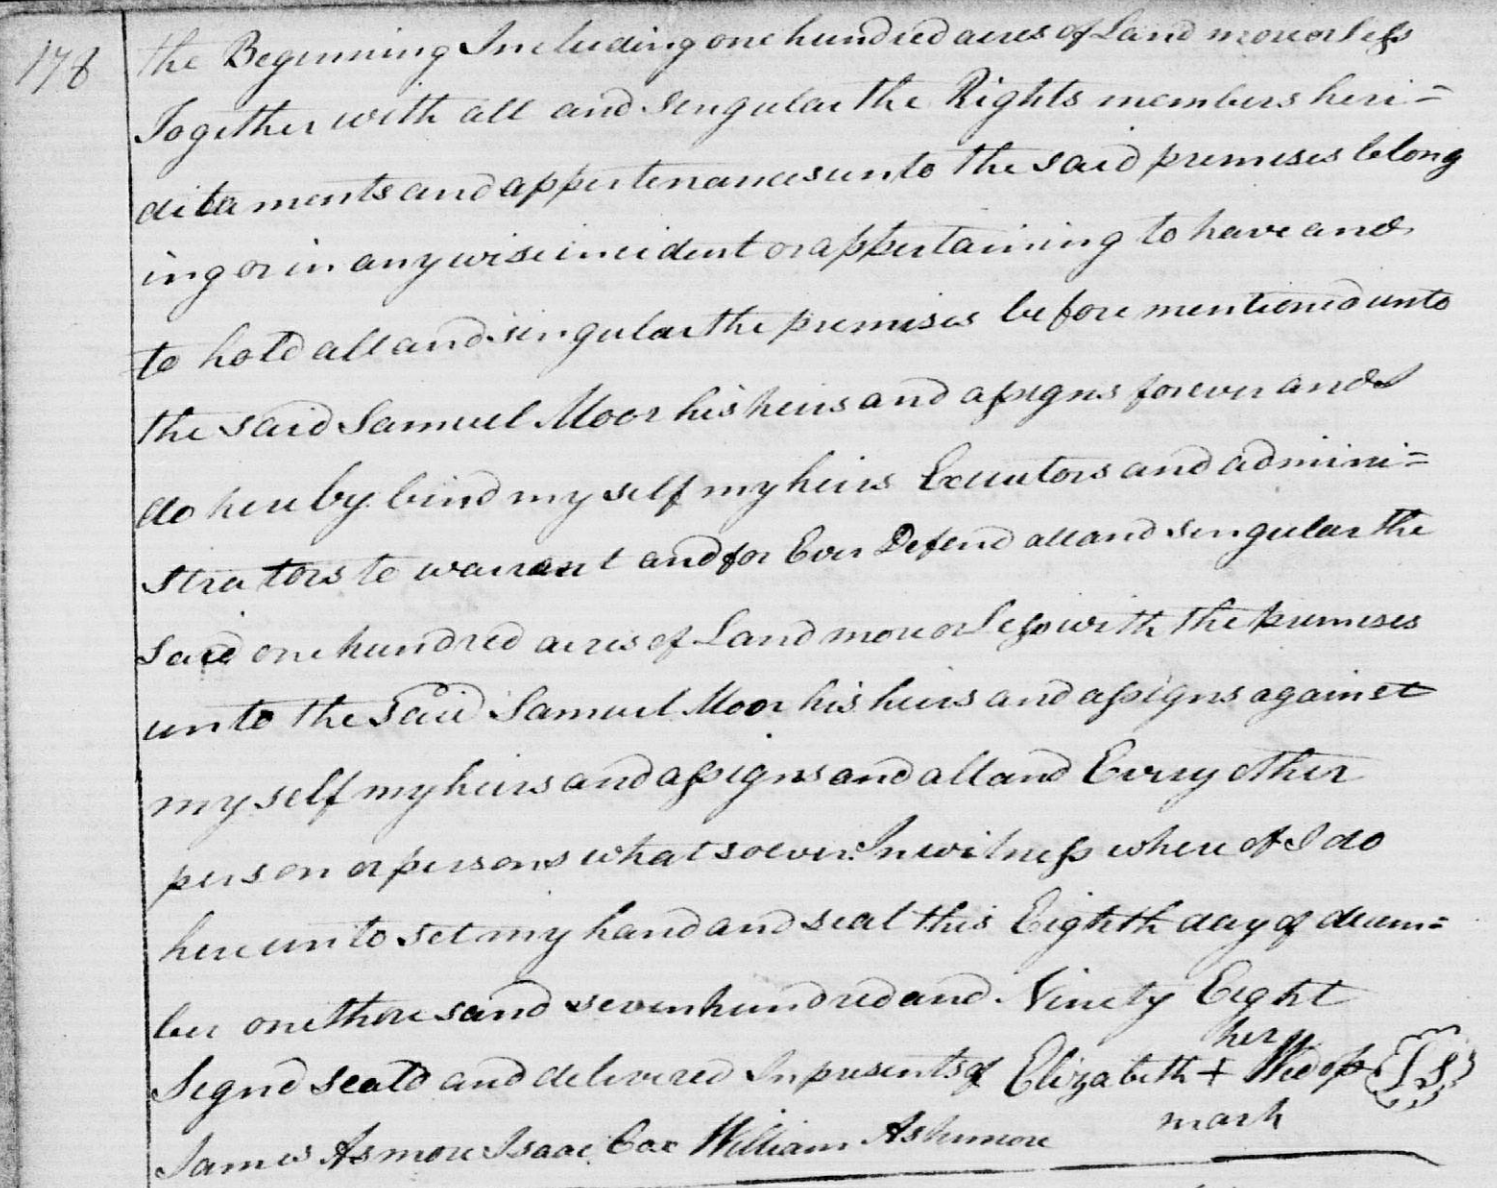 178
the Beginning Including one hundred acres of Land more or less
Together with all and singular the Rights members heri=
ditaments and appertenances unto the said premises belong
ing or in any wise incident or appertaining to have and
to hold all and singular the premises before mentioned unto
the said Samuel Moor his heirs and assigns forever and I
do hereby bind my self my heirs Executors and admini=
strators to warrant and for Ever Defend all and singular the
said one hundred acres of Land more or Less with the premises
unto the said Samuel Moor his heirs and assigns against
my self my heirs and assigns and all and Every other
person or persons what soever. In witness where of I do
here unto set my hand and seal this Eighth day of decem=
ber one thousand seven hundred and Ninety Eight
her
Signd seald and delivered In presents of Elizabeth + LS
mark
James Asmore Isaac Cox William Ashmore